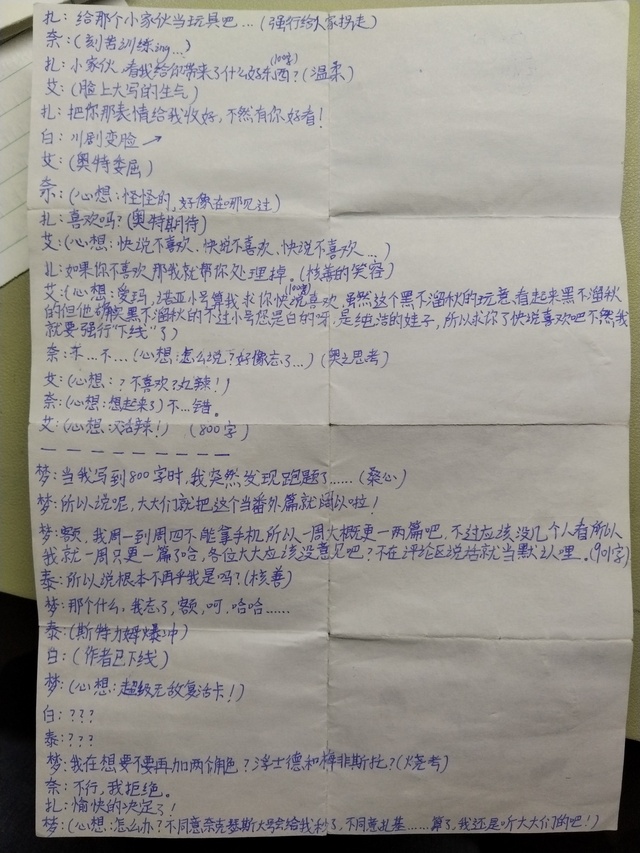 扎：给那个小家伙当玩具吧…(强行给人家拐走)
奈：(刻苦训练ing…)
扎：小家伙，看我给你带来了什么好东西？(温柔)
(100字)
艾：(脸上大写的生气)
扎：把你那表情给我收好，不然有你好看！
白：川剧变脸→
艾：(奥特委屈)
奈：(心想：怪怪的，好像在哪见过)
扎：喜欢吗？(奥特期待)
艾：(心想：快说不喜欢、快说不喜欢、快说不喜欢…)
扎：如果你不喜欢，那我就帮你处理掉。(核善的笑容)
艾：(心想：爱玛，诺亚小号算我求你快说喜欢，虽然这个黑不溜秋的玩意，看起来黑不溜秋
(100字)
的但他确实黑不溜秋的不过小号您是白的呀，是纯洁的娃子，所以求你了快说喜欢吧不然我
就要强行“下线”了)
奈：不…不…(心想：怎么说？好像忘了…)(奥之思考)
艾：(心想：？不喜欢？丸辣！)
奈：(心想：想起来了)不…错。
艾：(心想：活辣！) (800字)
— — — — — — — — —
梦：当我写到800字时，我突然发现跑题了……(黎心)
梦：所以说呢，大大们就把这个当番外篇就阔以啦！
梦：额，我周一到周四不能拿手机，所以一周大概更一两篇吧，不过应该没几个人看所以
我就一周只更一篇了哈，各位大大应该没意见吧？不在评论区说话就当默认哩。(901字)
泰：所以说根本不再乎我是吗？(核善)
梦：那个什么，我忘了，额，呵，哈哈……
泰：(斯特力姆爆冲)
白：(作者已下线)
梦：(心想：超级无敌复活卡！)
白：？？？
泰：？？？
梦：我在想要不要再加两个角色？浮士德和梅菲斯托？(烧考)
奈：不行，我拒绝。
扎：愉快的决定了！
梦：(心想：怎么办？不同意奈克瑟斯大号会给我秒了，不同意扎基……算了，我还是听大大们的吧！)